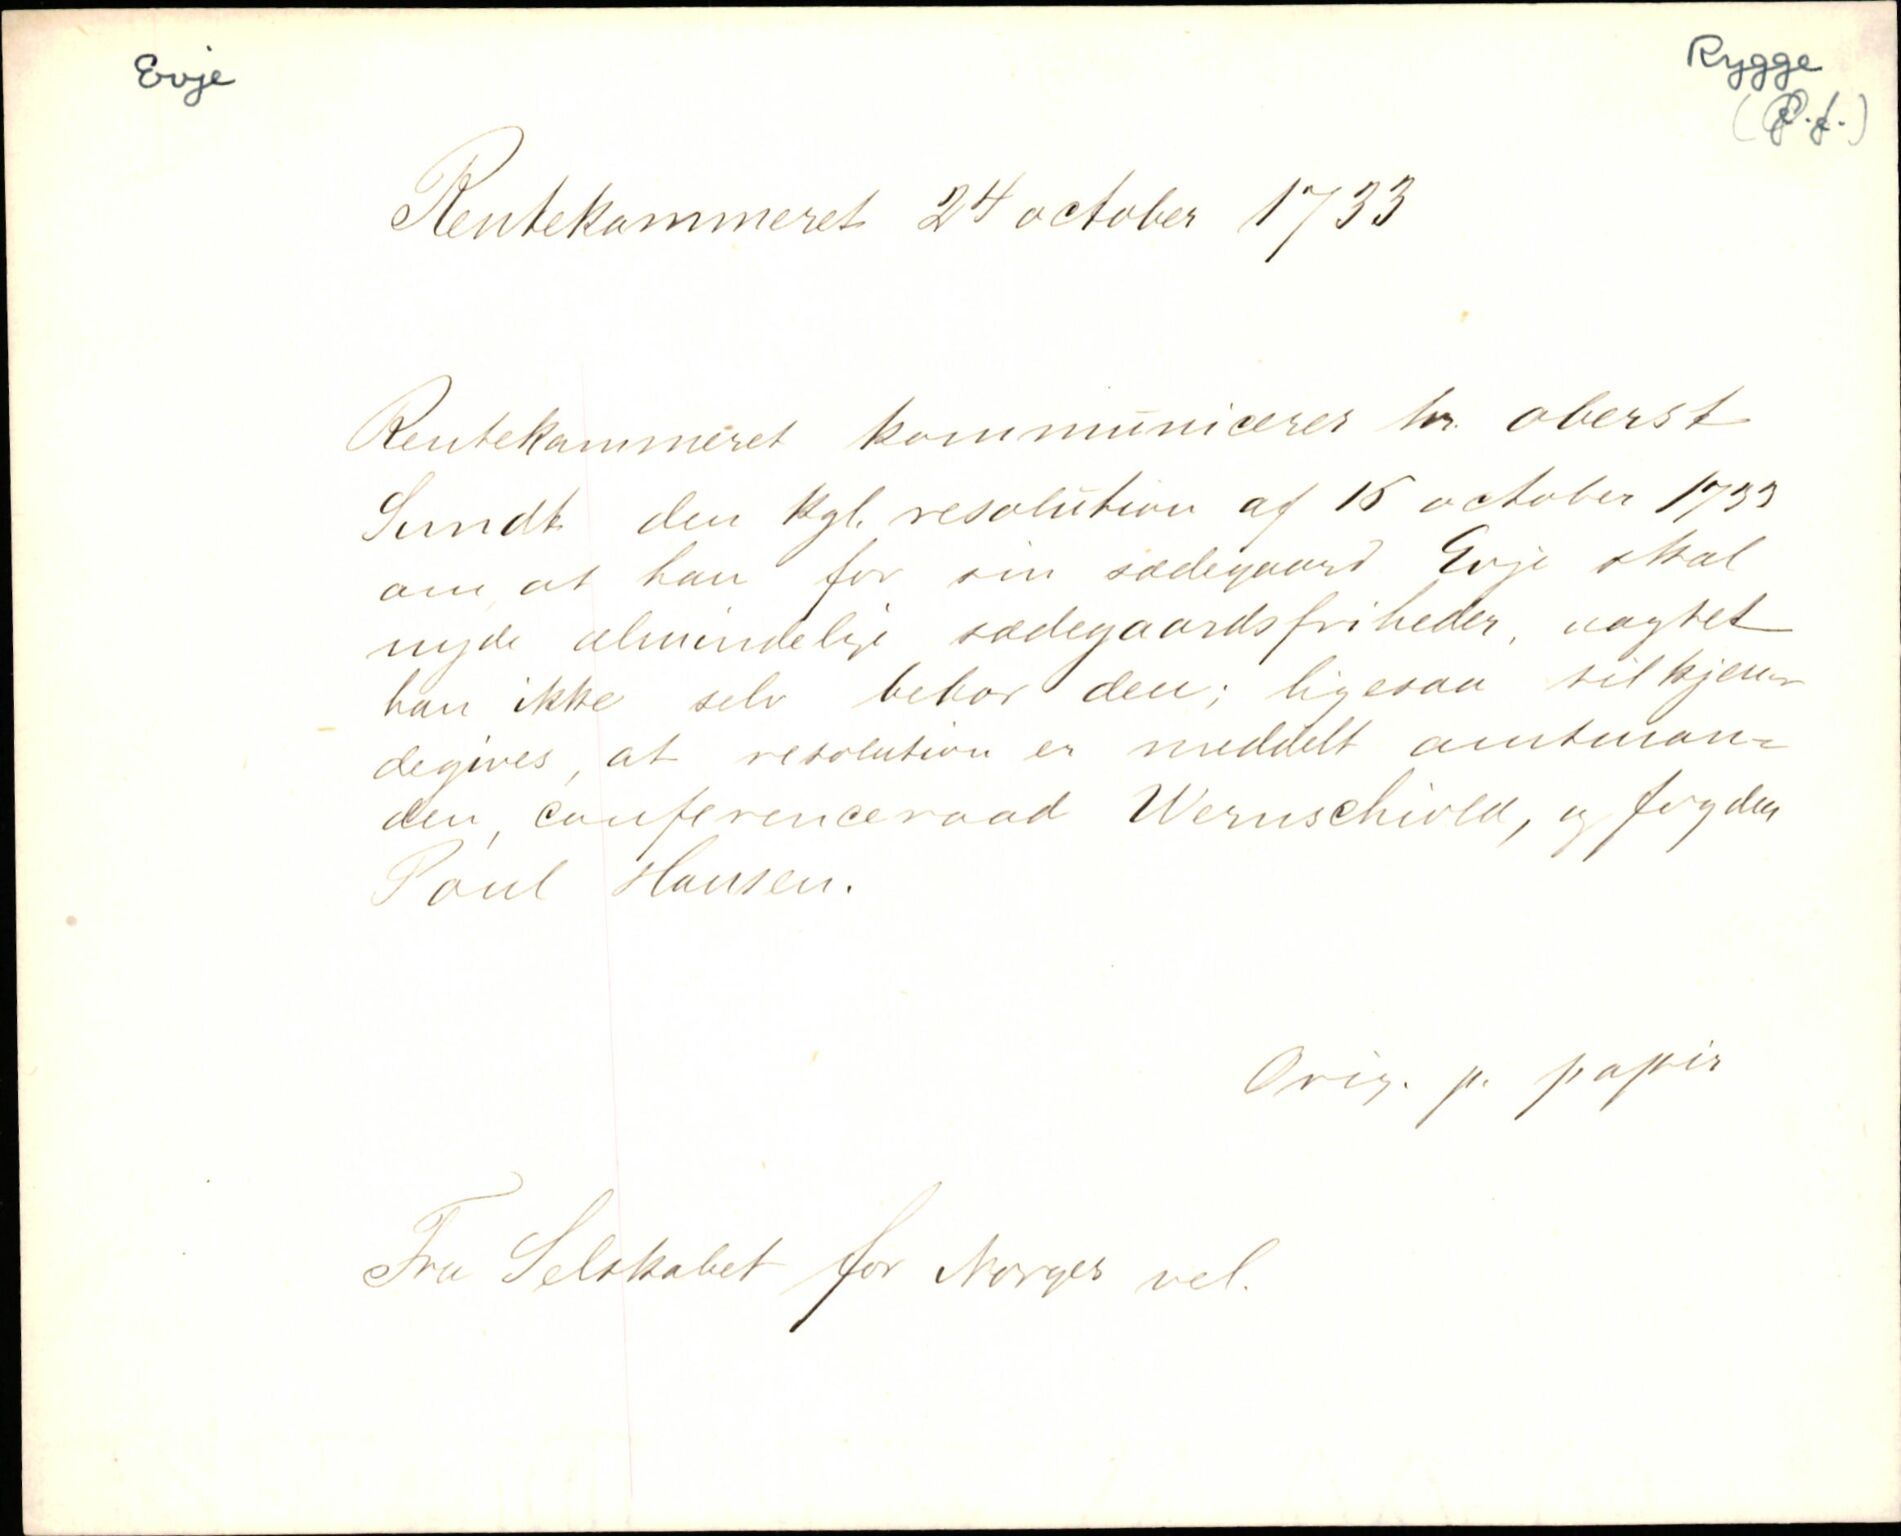 Evje
Rygge
(Ø.f.)
Rentekammeret 24 october 1733
Rentekammeret kommunicerer hr. oberst
Sundt den kgl. resolution af 16 october 1733
om, at han for sin sædegaard Evje skal
nyde almindelige sædegaardsfriheder, uagtet
han ikke selv bebor den; ligesaa tilkjen-
degives, at resolution er meddelt amtman-
den, conferenceraad Wernschiold, og fogden
Poul Hansen.
Orig. p. papir
Fra Selskabet for Norges vel.